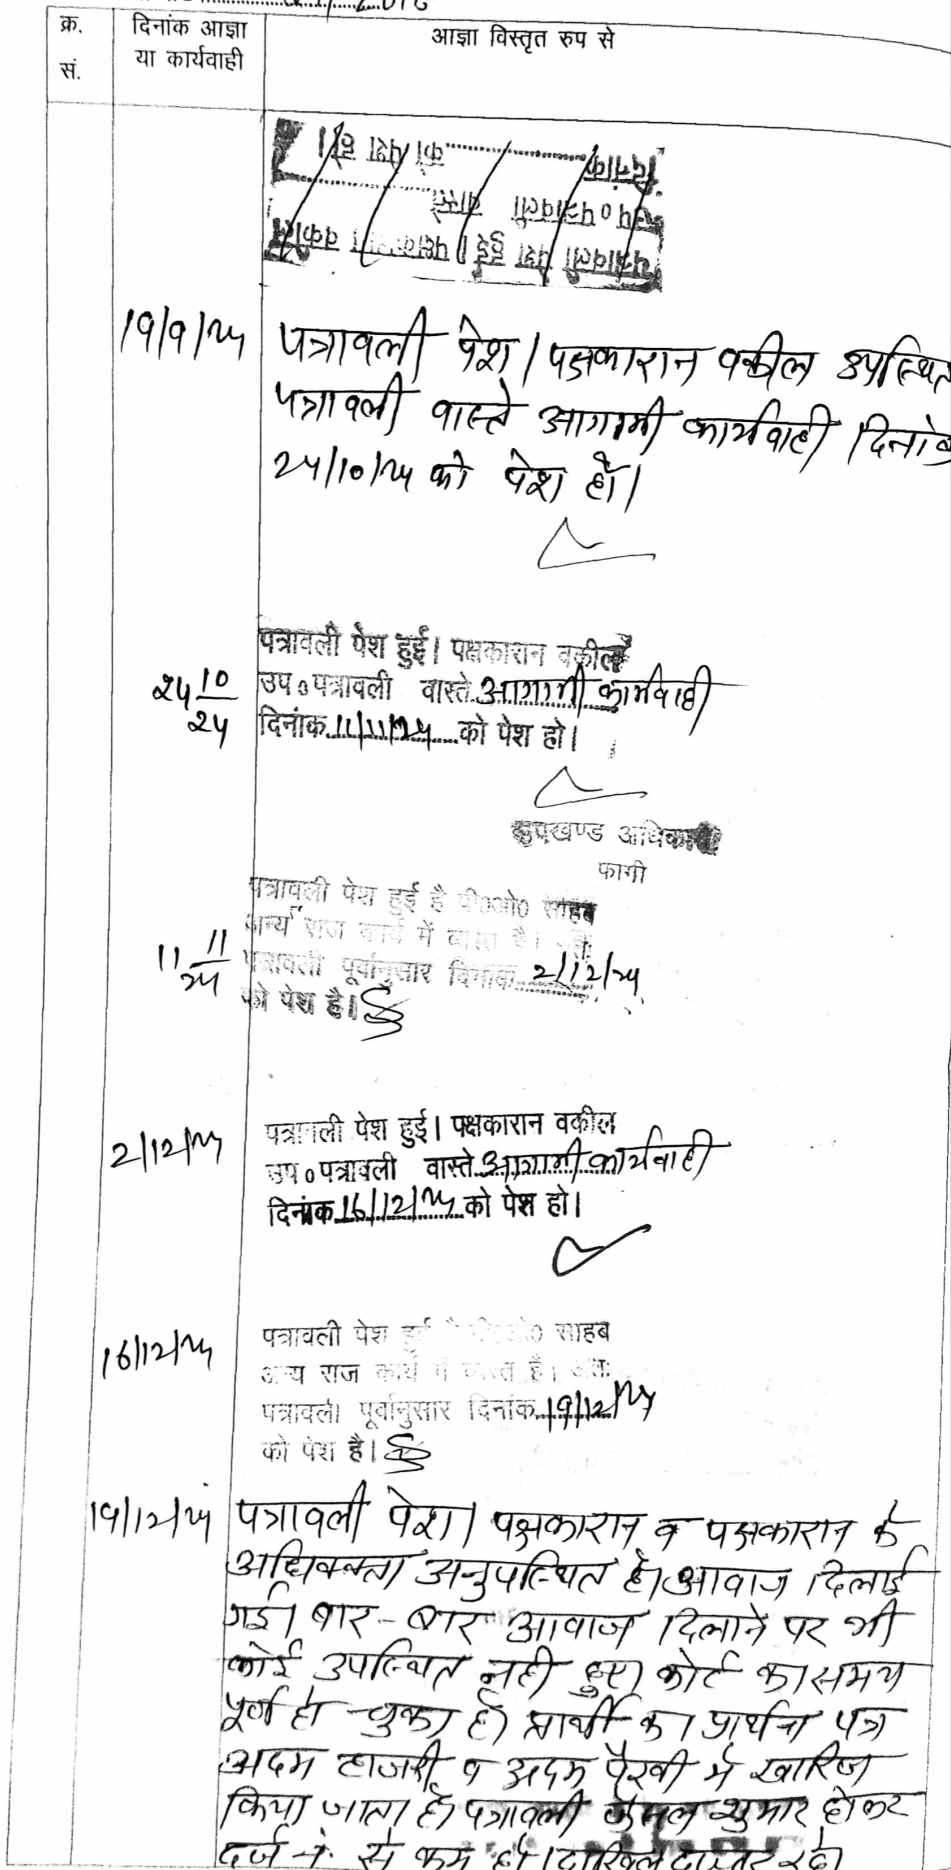 क्र. सं.
दिनांक आज्ञा या कार्यवाही
आज्ञा विस्तृत रुप से
पत्रावली पेश हुई। पक्षकारान वकील
उप० पत्रावली वास्ते
दिनांक को पेश हो।
19/9/24 पत्रावली पेश। पक्षकारान वकील उपस्थित
पत्रावली वास्ते आगामी कार्यवाही दिनांक
24/10/24 को पेश हो।
पत्रावली पेश हुई। पक्षकारान वकील
24 10/24 उप० पत्रावली वास्ते आगामी कार्यवाही
दिनांक 11/11/24 को पेश हो।
उपखण्ड अधिकारी
फागी
पत्रावली पेश हुई है पी०ओ० साहब
अन्य राज कार्य में व्यस्त है। अतः
11 11/24 पत्रावली पूर्वानुसार दिनांक 2/12/24
को पेश है।
2/12/24 पत्रावली पेश हुई। पक्षकारान वकील
उप० पत्रावली वास्ते आगामी कार्यवाही
दिनांक 16/12/24 को पेश हो।
16/12/24 पत्रावली पेश हुई है पी०ओ० साहब
अन्य राज कार्य में व्यस्त है। अतः
पत्रावली पूर्वानुसार दिनांक 19/12/24
को पेश है।
19/12/24 पत्रावली पेश। पक्षकारान व पक्षकारान के
अधिवक्ता अनुपस्थित है। आवाज दिलाई
गई। बार-बार आवाज दिलाने पर भी
कोई उपस्थित नही हुए। कोर्ट का समय
पूर्ण हो चुका है। प्रार्थी का प्रार्थना पत्र
अदम हाजरी व अदम पैरवी में खारिज
किया जाता है। पत्रावली फैसल शुमार होकर
दर्ज नं. से कम हो। दाखिल दफ्तर रहे।